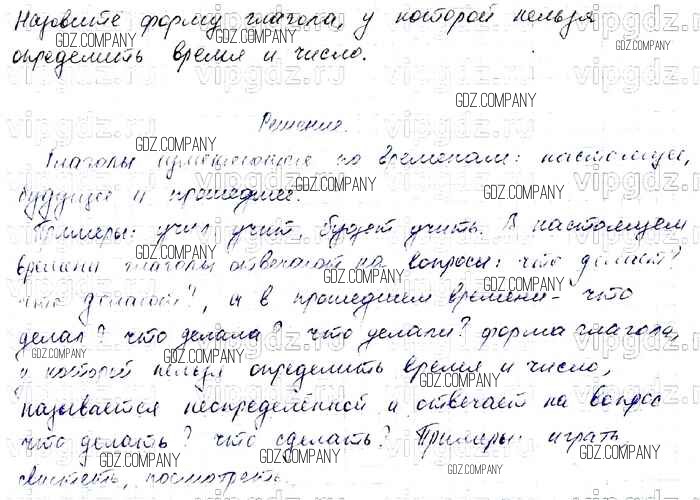 Назовите форму глагола, у которой нельзя
определить время и число.
Решение.
Глаголы изменяются по временам: настоящее,
будущее и прошедшее.
Примеры: учил, учит, будет учить. В настоящем
времени глаголы отвечают на вопросы: что делает?
что делают?, а в прошедшем времени - что
делал? что делала? что делали? форма глагола,
у которой нельзя определить время и число,
называется неопределённой и отвечает на вопрос
что делать? что сделать? Примеры: играть,
свистеть, посмотреть.